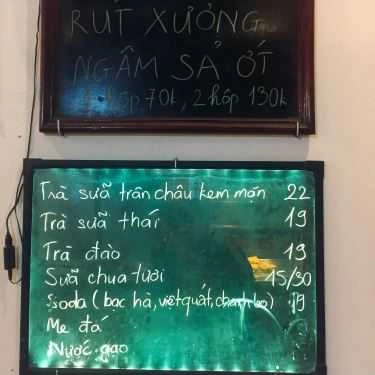 RÚT XƯỞNG
NGÂM SẢ ỚT
hộp 70k, 2 hộp 130k
Trà sữa trân châu kem mặn 22
Trà sữa thái 19
Trà đào 19
Sữa chua tươi 15/30
Soda (bạc hà, việt quất, chanh leo) 19
Me đá
Nước gạo